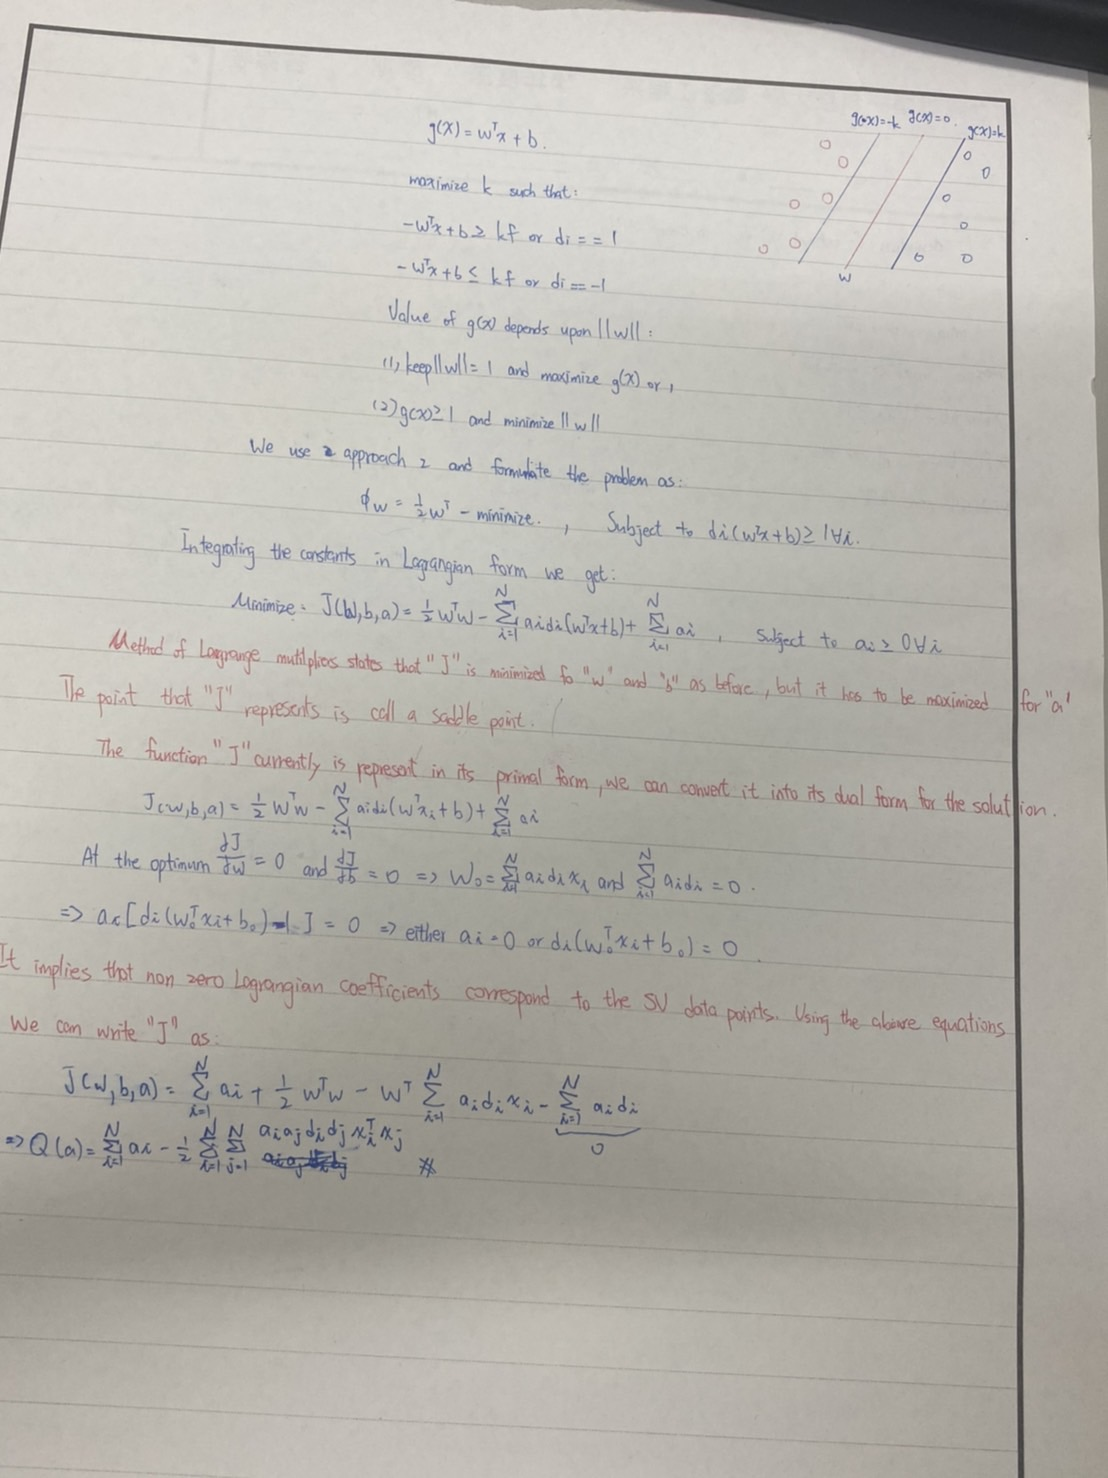 g(x)=-k g(x)=0. g(x)=k
g(x) = wᵀx + b.
maximize k such that:
-wᵀx+b ≥ kf or di == 1
-wᵀx+b ≤ kf or di == -1
w
Value of g(x) depends upon ||w||:
(1) keep ||w|| = 1 and maximize g(x) or,
(2) g(x) ≥ 1 and minimize ||w||
We use approach 2 and formulate the problem as:
ϕw = ½wᵀ - minimize. , Subject to di(wᵀx+b) ≥ 1 ∀i.
Integrating the constants in Lagrangian form we get:
Minimize: J(W,b,a) = ½wᵀw - Σ_{i=1}^{N} aidi(wᵀx+b) + Σ_{i=1}^{N} ai , Subject to ai ≥ 0 ∀i
Method of Lagrange mutilpliers states that "J" is minimized fo "w" and "b" as before, but it has to be maximized for "a"
The point that "J" represents is call a saddle point.
The function "J" currently is represent in its primal form, we can convert it into its dual form for the solution.
J(w,b,a) = ½wᵀw - Σ_{i=1}^{N} aidi(wᵀxi+b) + Σ_{i=1}^{N} ai
At the optimum dJ/dw = 0 and dJ/db = 0 => W₀ = Σ_{i=1}^{N} aidixi and Σ_{i=1}^{N} aidi = 0.
=> ai[di(w₀ᵀxi+b₀)-1] = 0 => either ai=0 or di(w₀ᵀxi+b₀) = 0.
It implies that non zero Lagrangian coefficients correspond to the SV data points. Using the above equations
We can write "J" as:
J(w,b,a) = Σ_{i=1}^{N} ai + ½wᵀw - wᵀ Σ_{i=1}^{N} aidixi - Σ_{i=1}^{N} aidi
0
=> Q(a) = Σ_{i=1}^{N} ai - ½ Σ_{i=1}^{N} Σ_{j=1}^{N} aiajdidjxiᵀxj #